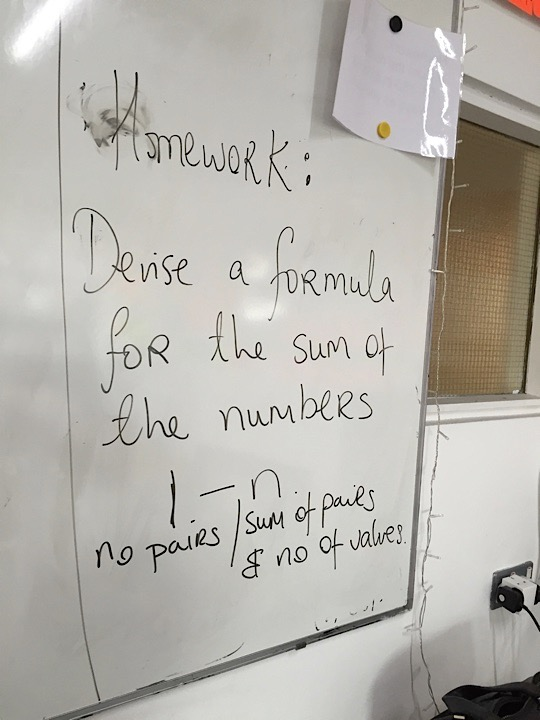 Homework:
Devise a formula
for the sum of
the numbers
1 – n
no pairs / sum of paies
& no of values.